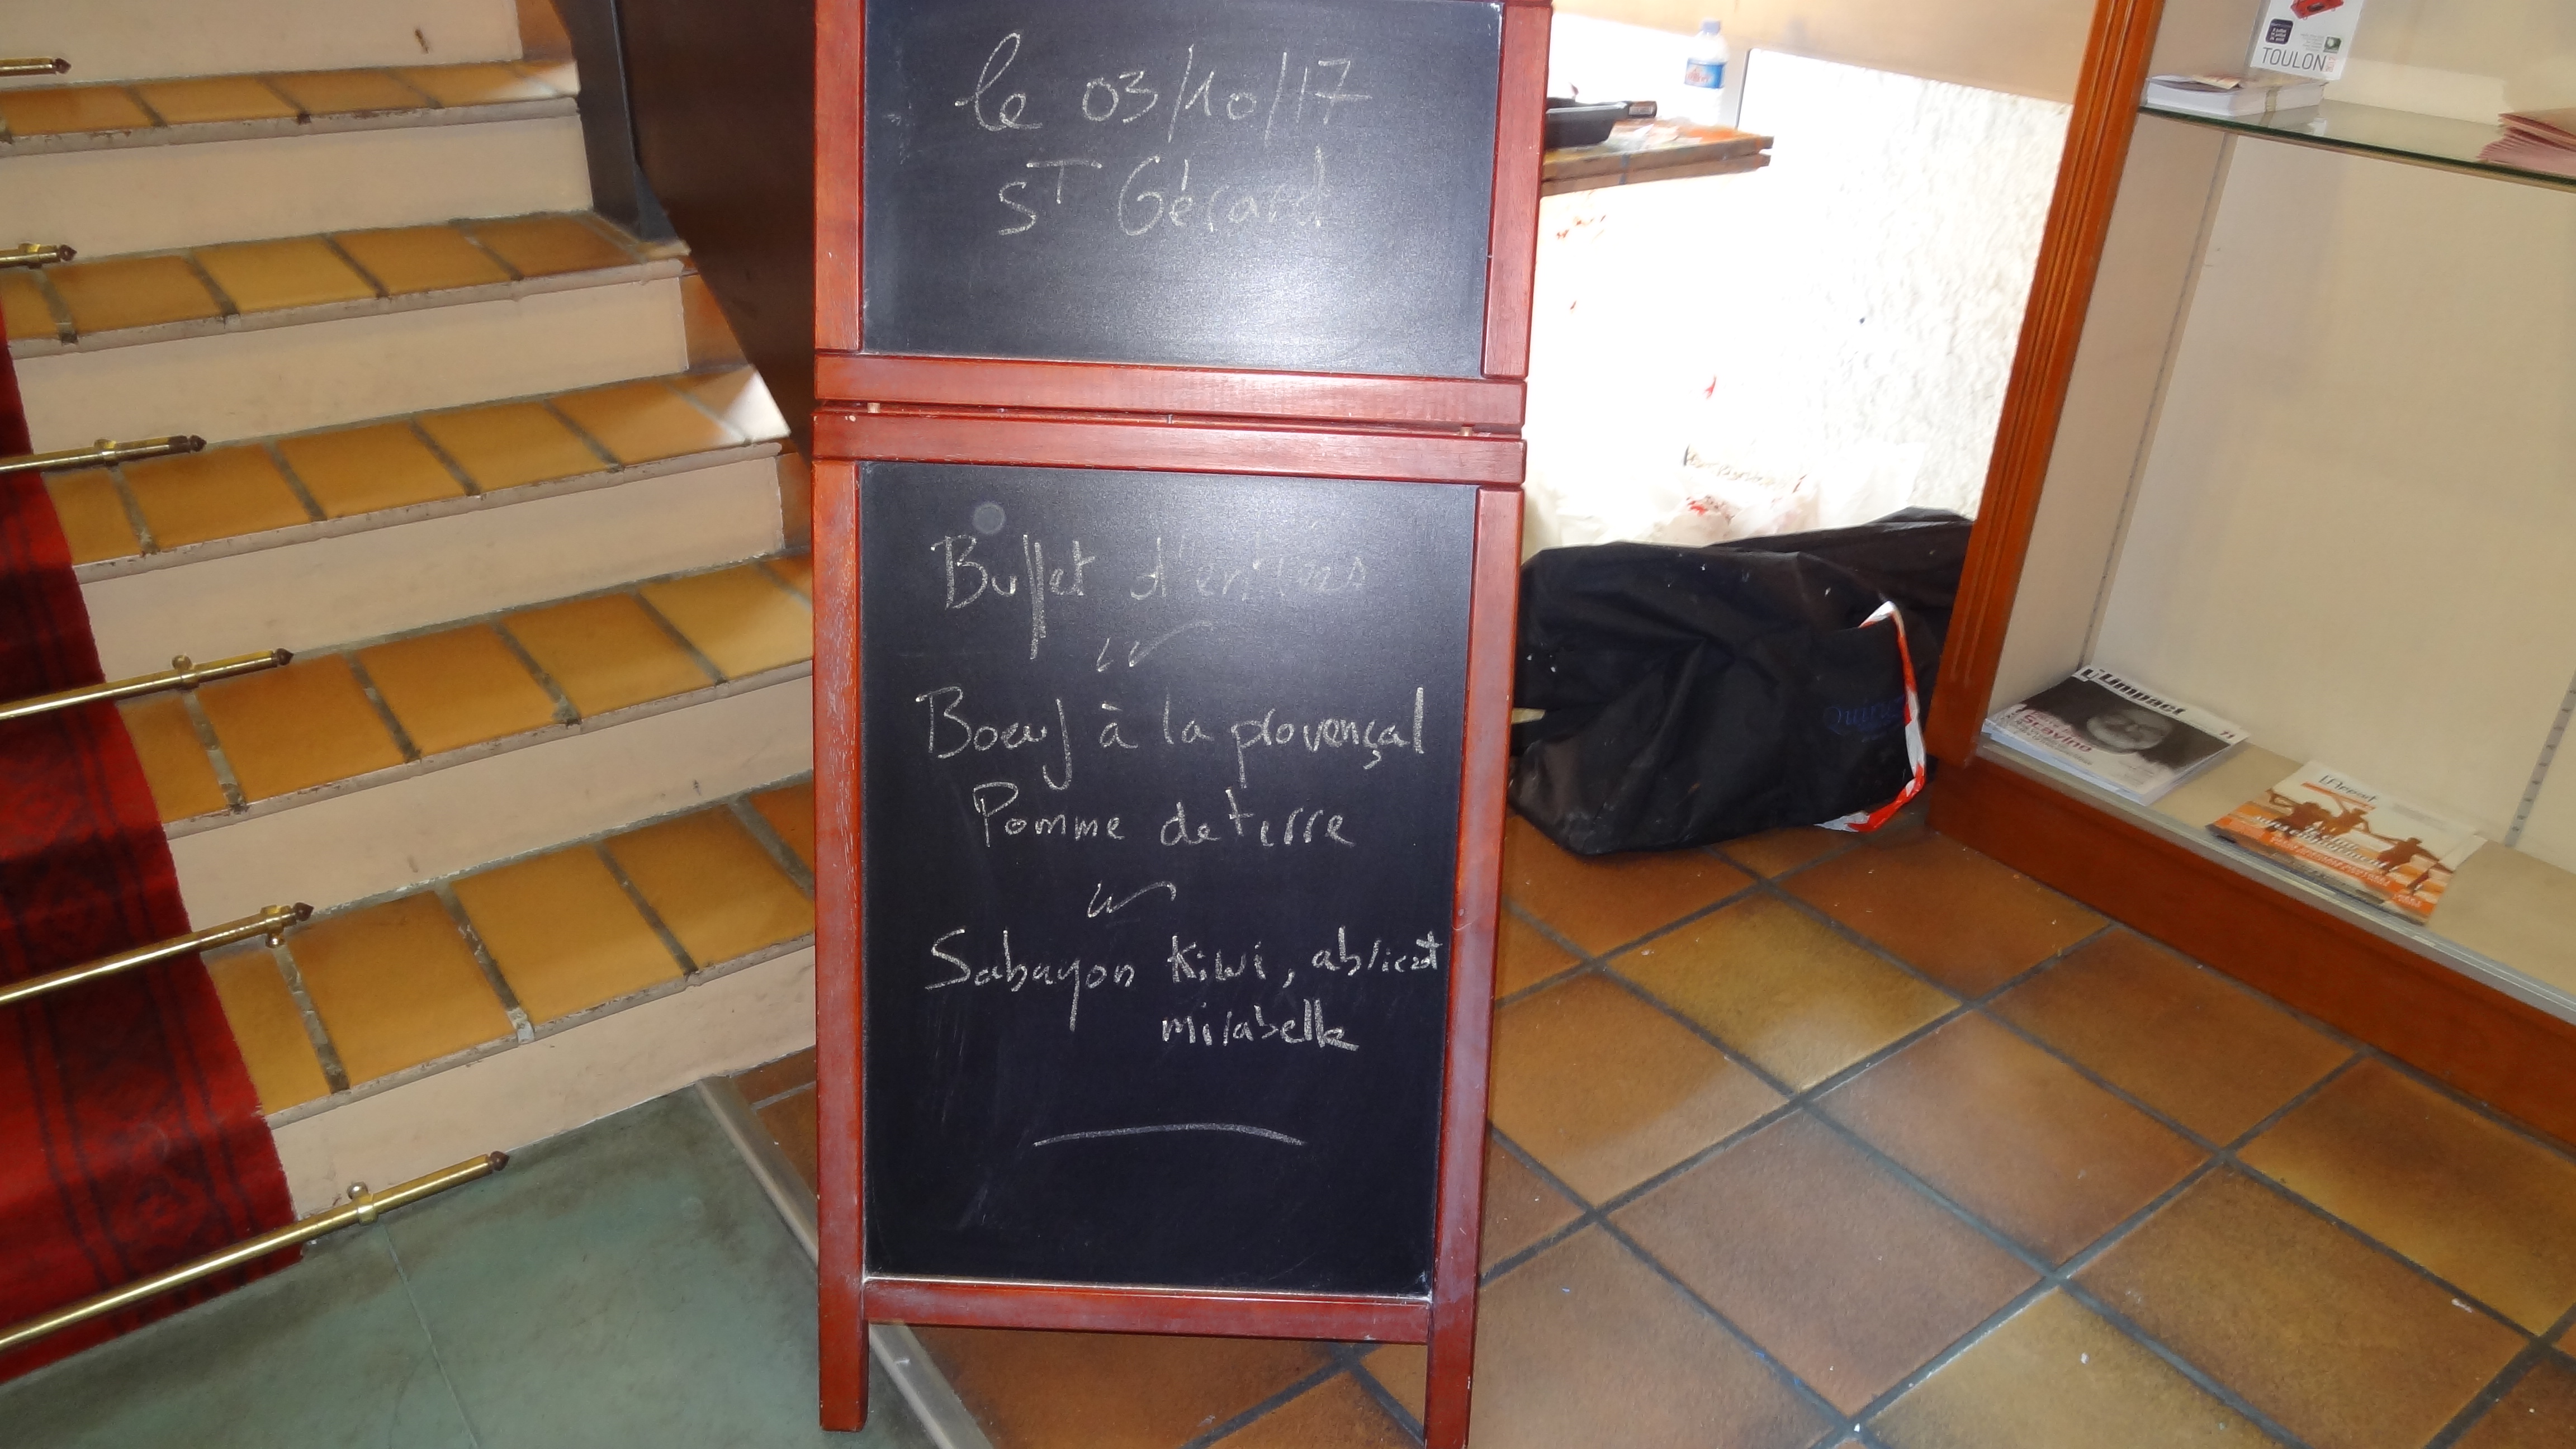 le 03/10/17
ST Gérard
Buffet d'entrées
Boeuf à la provençal
Pomme de terre
Sabayon Kiwi, abricot
mirabelle
TOULON
L'Impact
Scavino
71